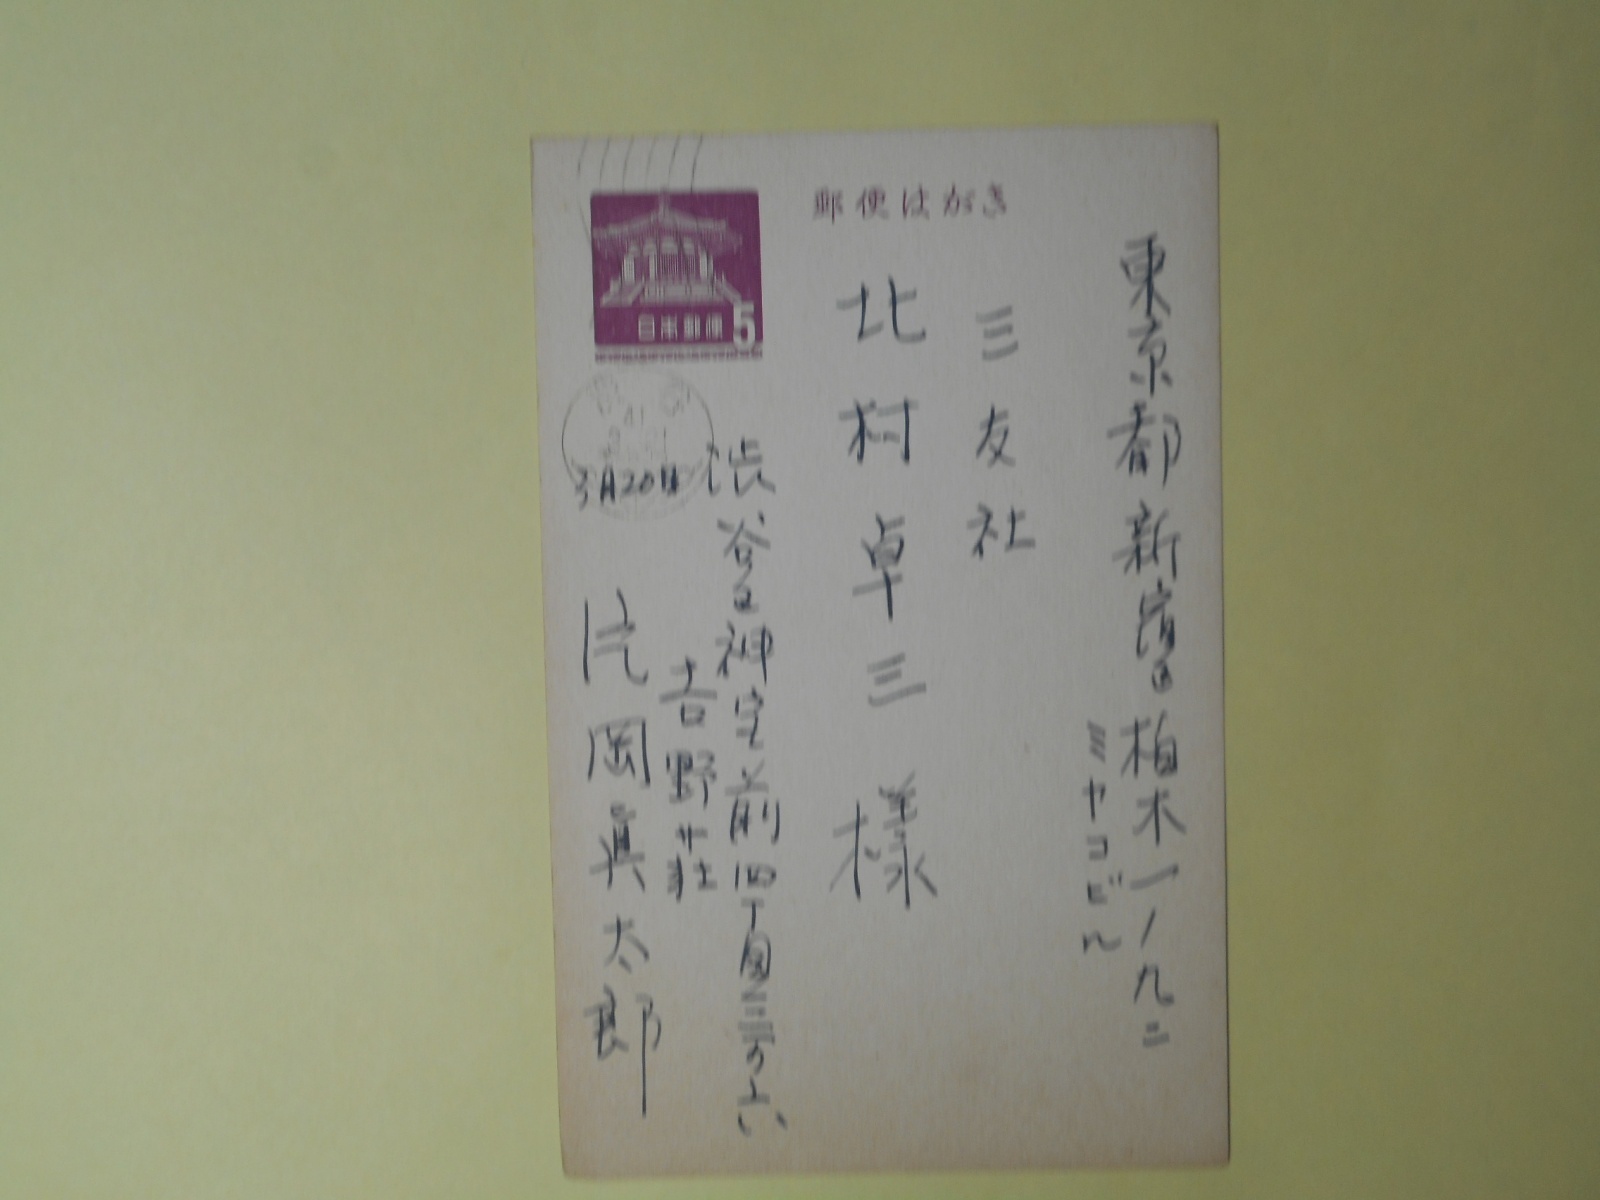 郵便はがき
東京都新宿区柏木一ノ九二
ミヤコビル
三友社
北村卓三様
日本郵便 5
41
3月20日
渋谷区神宮前四丁目
吉野荘
片岡眞太郎